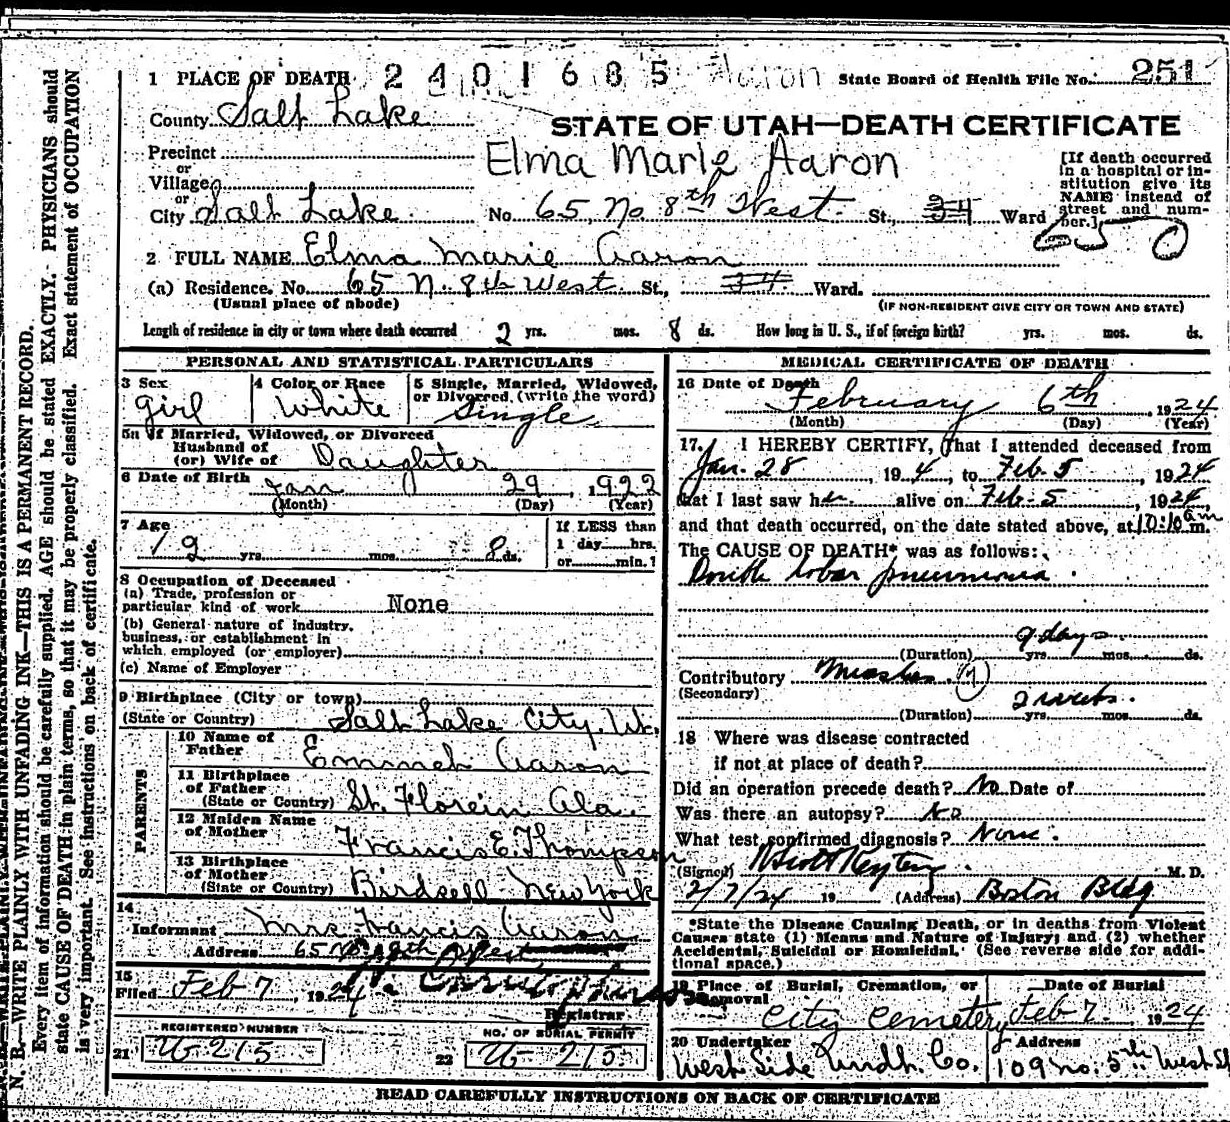 1 PLACE OF DEATH 2401685 Aaron State Board of Health File No. 251
County Salt Lake
STATE OF UTAH—DEATH CERTIFICATE
Precinct
or
Village
or
Elma Marie Aaron
[If death occurred in a hospital or institution give its NAME instead of street and number.]
City Salt Lake. No. 65, No 8th West. St., 34 Ward
650
2 FULL NAME Elma Marie Aaron
(a) Residence. No. 65 N. 8th West St., 34 Ward.
(Usual place of abode) (IF NON-RESIDENT GIVE CITY OR TOWN AND STATE)
Length of residence in city or town where death occurred 2 yrs. mos. 8 ds. How long in U. S., if of foreign birth? yrs. mos. ds.
PERSONAL AND STATISTICAL PARTICULARS
3 Sex
girl
4 Color or Race
White
5 Single, Married, Widowed, or Divorced (write the word)
Single
5a If Married, Widowed, or Divorced
Husband of
(or) Wife of Daughter
6 Date of Birth Jan 29, 1922
(Month) (Day) (Year)
7 Age
2 yrs. mos. 8 ds.
If LESS than
1 day hrs.
or min.?
8 Occupation of Deceased
(a) Trade, profession or
particular kind of work None
(b) General nature of industry,
business, or establishment in
which employed (or employer)
(c) Name of Employer
9 Birthplace (City or town)
(State or Country) Salt Lake City. Ut.
PARENTS
10 Name of
Father Emmeh Aaron
11 Birthplace
of Father
(State or Country) St. Florein Ala.
12 Maiden Name
of Mother Francis E. Thompson
13 Birthplace
of Mother
(State or Country) Birdsell New York
14
Informant Mrs Francis Aaron
Address 65 N 8th West
15
Filed Feb 7, 1924
Registrar
REGISTERED NUMBER
21 U-215
NO. OF BURIAL PERMIT
22 U-215
MEDICAL CERTIFICATE OF DEATH
16 Date of Death
February 6th, 1924
(Month) (Day) (Year)
17. I HEREBY CERTIFY, That I attended deceased from
Jan. 28, 194, to Feb. 5, 1924
that I last saw her alive on Feb-5, 1924,
and that death occurred, on the date stated above, at 10:10 a m.
The CAUSE OF DEATH* was as follows:
Double lobar pneumonia.
9 days
(Duration) yrs. mos. ds.
Contributory Measles. (7)
(Secondary)
2 weeks.
(Duration) yrs. mos. ds.
18 Where was disease contracted
if not at place of death?
Did an operation precede death? No Date of
Was there an autopsy? No
What test confirmed diagnosis? None.
(Signed) M. D.
2/7/24 19 (Address) Boston Bldg
*State the Disease Causing Death, or in deaths from Violent
Causes state (1) Means and Nature of Injury; and (2) whether
Accidental, Suicidal or Homicidal. (See reverse side for addi-
tional space.)
19 Place of Burial, Cremation, or
Removal
City Cemetery
Date of Burial
Feb 7 1924
20 Undertaker
West Side Undt. Co.
Address
109 No. 5th West St
READ CAREFULLY INSTRUCTIONS ON BACK OF CERTIFICATE
N. B.—WRITE PLAINLY WITH UNFADING INK—THIS IS A PERMANENT RECORD.
Every item of information should be carefully supplied. AGE should be stated EXACTLY. PHYSICIANS should
state CAUSE OF DEATH in plain terms, so that it may be properly classified. Exact statement of OCCUPATION
is very important. See instructions on back of certificate.